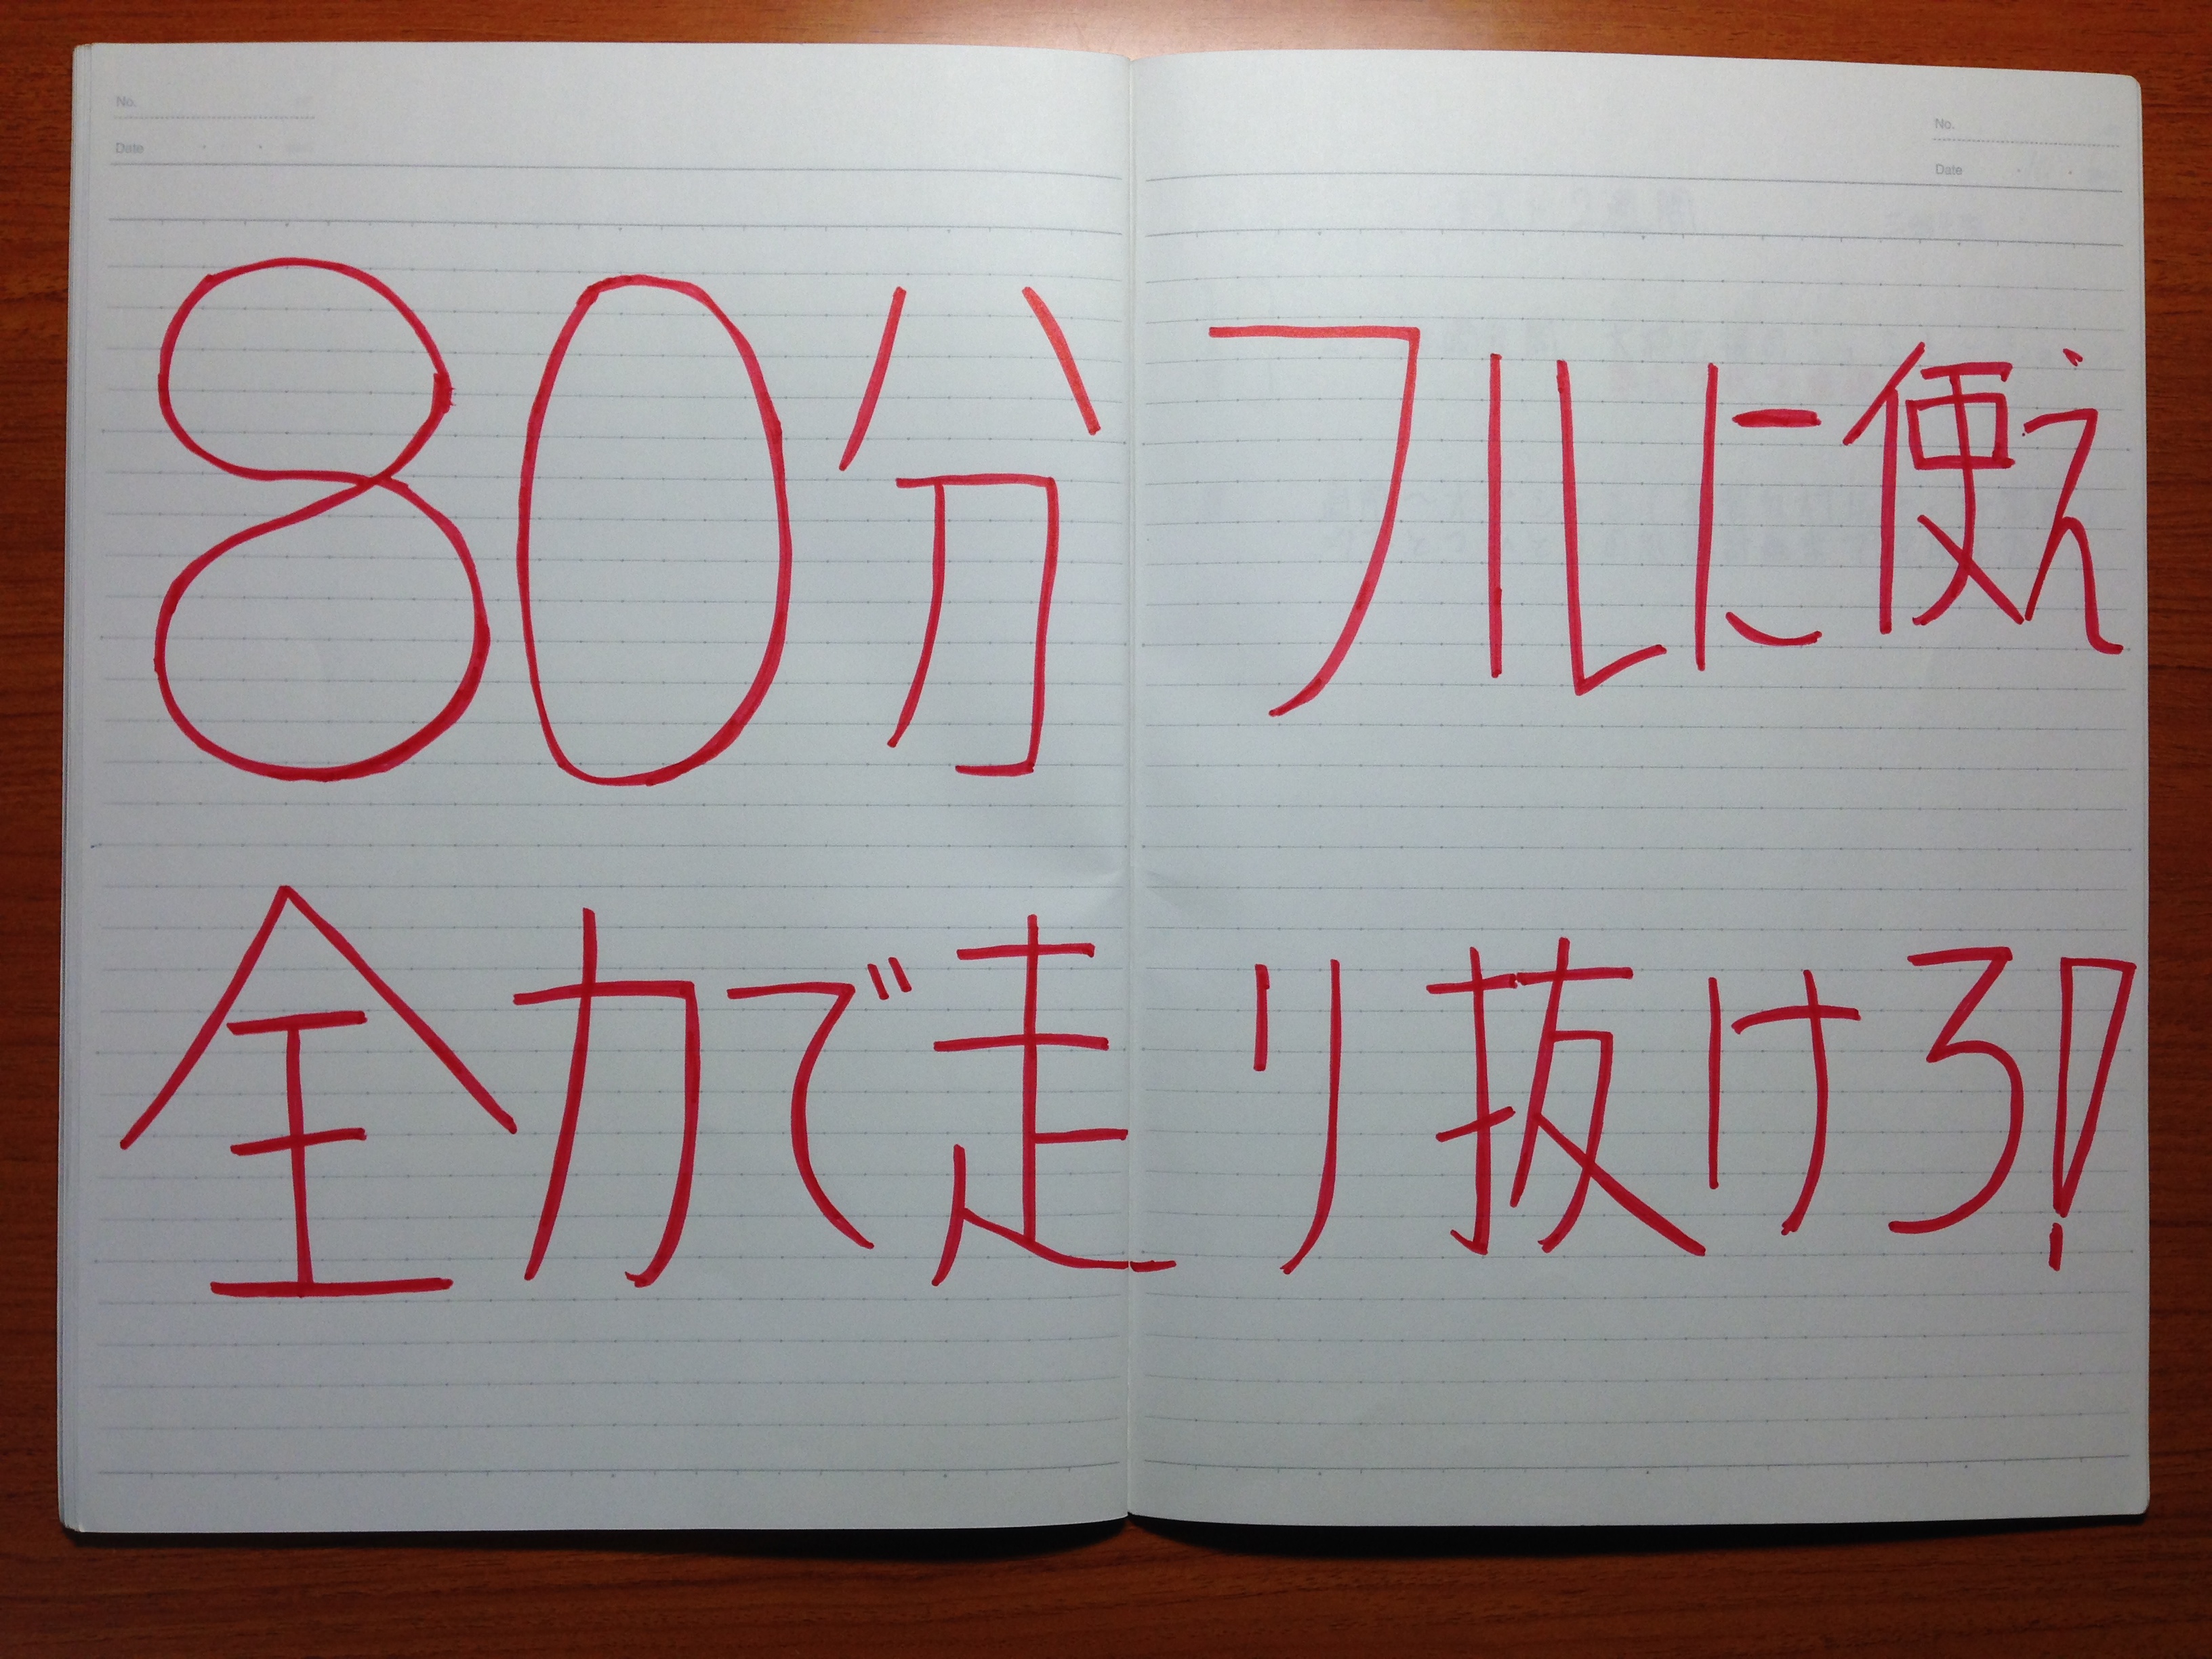 No.
Date
No.
Date
80分フルに使え
全力で走り抜けろ!